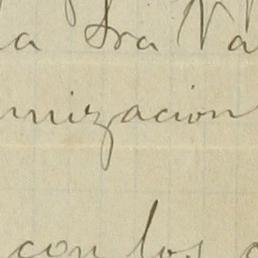 a Sra Va
nización
con los